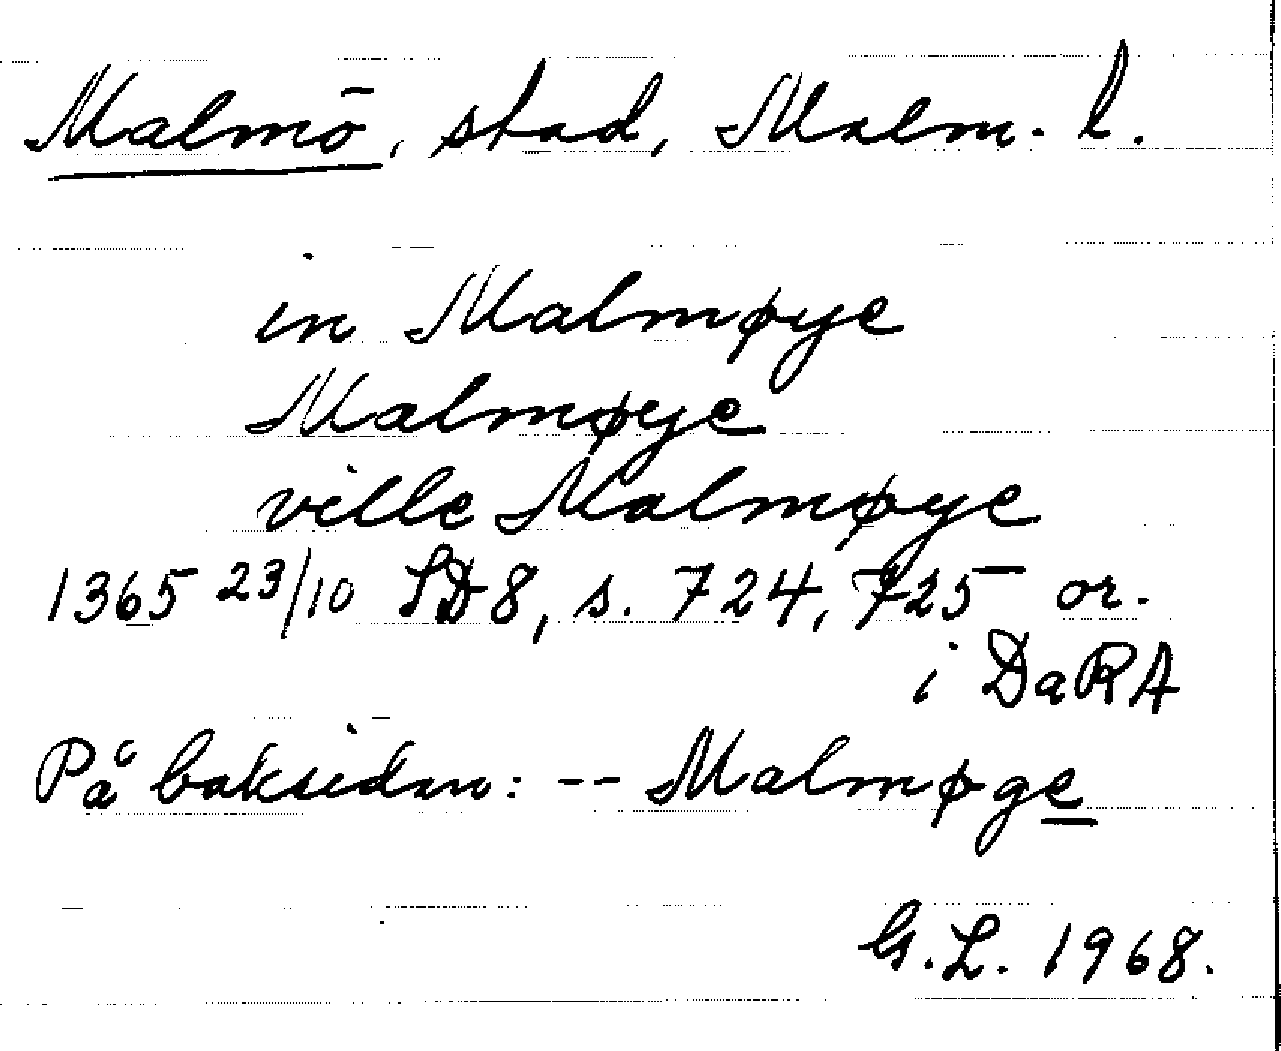 Malmö, stad, Malm. l.
in Malmøye
Malmøye
ville Malmøye
1365 23/10 SD8, s. 724, 725 or.
i DaRA
På baksidan: -- Malmøge
G.L. 1968.